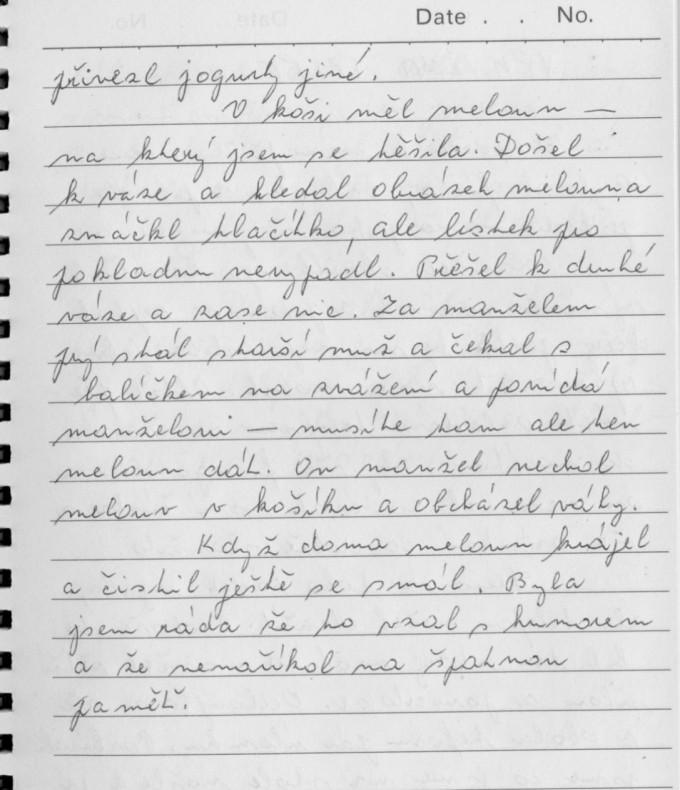 Date . . No.
přivezl jogurty jiné.
V koši měl meloun —
na který jsem se těšila. Došel
k váze a hledal obrázek melouna
zmáčkl tlačítko, ale lístek pro
pokladnu nevypadl. Přešel k druhé
váze a zase nic. Za manželem
prý stál starší muž a čekal s
balíčkem na zvážení a povídá
manželovi — musíte tam ale ten
meloun dát. On manžel nechal
meloun v košíku a obcházel váhy.
Když doma meloun krájel
a čistil ještě se smál. Byla
jsem ráda že to vzal s humorem
a že nenaříkal na špatnou
paměť.